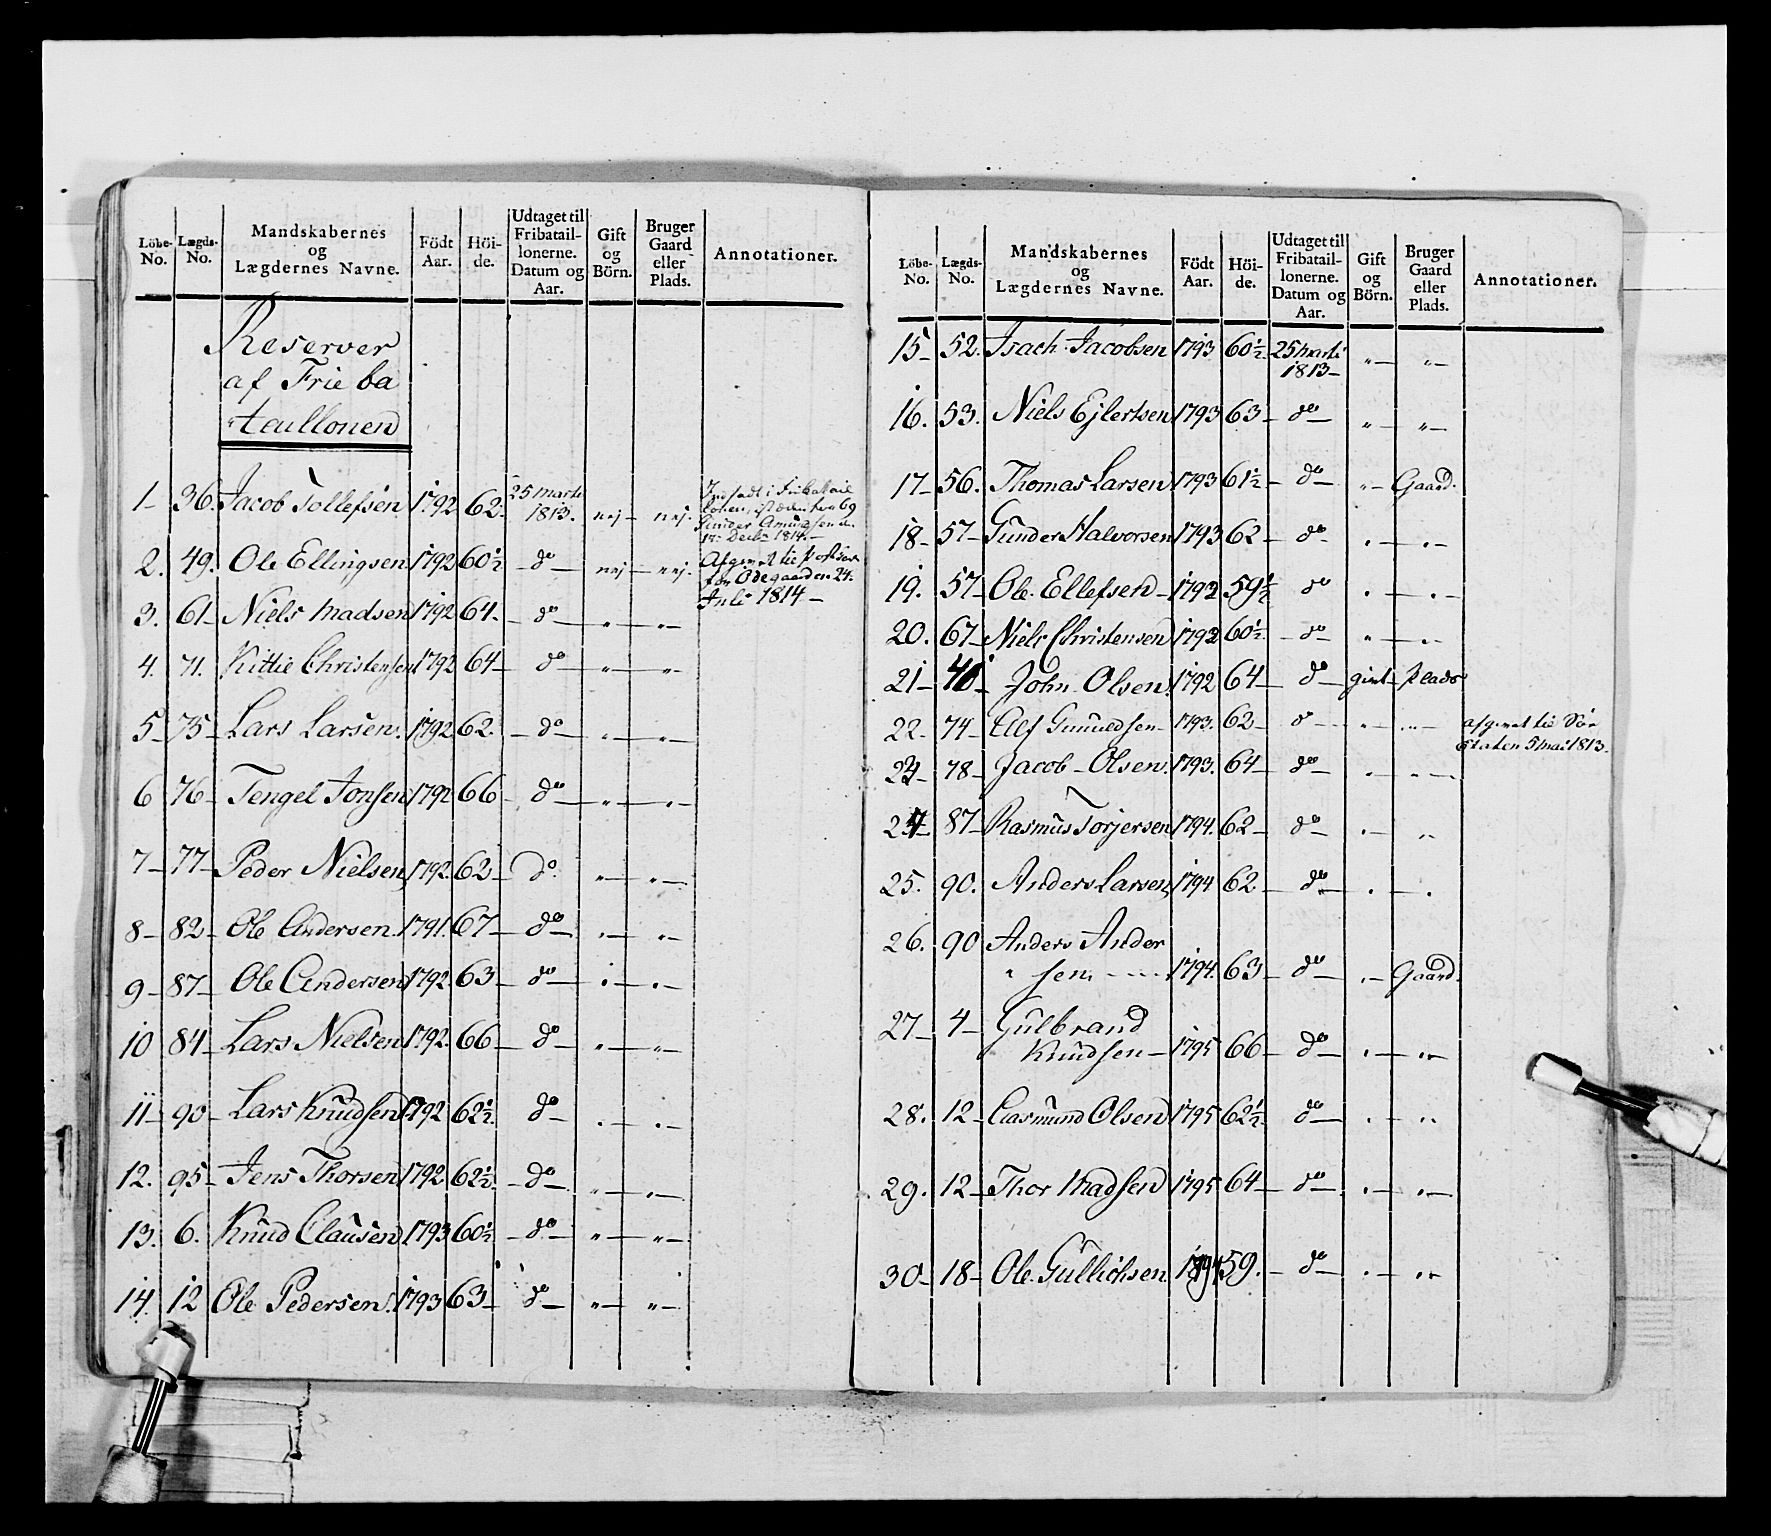 Löbe-No. Lægds-No. Mandskabernes og Lægdernes Navne. Födt Aar. Höi-de. Udtaget til Fribatail-lonerne. Datum og Aar. Gift og Börn. Bruger Gaard eller Plads. Annotationer.
Reserver
af Frie ba
taillonen
1- 36. Jacob Tollefsen. 1792 62. 25 Marti 1813. nej- nej.
2. 49. Ole Ellingsen 1792 60½ -do- nej- nej.
Juli 1814-
3. 61- Niels Madsen 1792 64. -do- „- „-
4. 71. Kittil Christensen 1792 64- do „- „-
5- 75- Lars Larsen. 1792. 62. -do- „- „-
6 76- Tengel Jonsen 1792 66 -do- „- „-
7- 77- Peder Nielsen 1792. 62- do. „- „-
8- 82- Ole Andersen. 1791. 67- do- „- „-
9- 87- Ole Andersen 1792. 63- do- „- „-
10 84- Lars Nielsen 1792. 66- do- „- „-
11- 90- Lars Knudsen 1792 62½. do- .- .-
12. 95- Jens Thorsen 1792 62½. -do- „- „-
13. 6. Knud Clausen 1793 60½ -do- „- „-
14. 12 Ole Pedersen. 1793 63- do- „- „-
Löbe-No. Lægds-No. Mandskabernes og Lægdernes Navne. Födt Aar. Höi-de. Udtaget til Fribatail-lonerne. Datum og Aar. Gift og Börn. Bruger Gaard eller Plads. Annotationer.
15- 52. Isach Jacobsen 1793 60½. 25 Marti 1813- „- „-
16. 53. Niels Ejlertsen 1793 63- do- „- „-
17- 56. Thomas Larsen 1793 61½- do- „- Gaard.
18- 57- Gunder Halvorsen 1793 62- do- .- .-
19. 57- Ole Ellefsen- 1792 59½ do .- .-
20. 67- Niels Christensen 1792 60½. -do- „- .-
21- 40- John Olsen. 1792 64- do- givt- Plads
22- 74- Alf 1793. 62- d- „- „- afgivet til Söe
Etaten 5 Mai 1813.
23- 78- Jacob- Olsen. 1793. 64- do- .- .-
24- 87- Rasmus Torjersen 1794. 62- do- .- „
25. 90. Anders Larsen 1794 62 -do- .- .
26. 90 Anders Ander
„ sen. - - - 1794. 63- do- .- Gaard.
27- 4- Gulbrand
Knudsen- 1795 66- do- .- „-
28. 12- Aasmund Olsen 1795 62½. do- .- „
29. 12- Thor Madsen 1795 64- do- .- „-
30- 18- Ole Gullichsen 1794 59. -do- .- „-